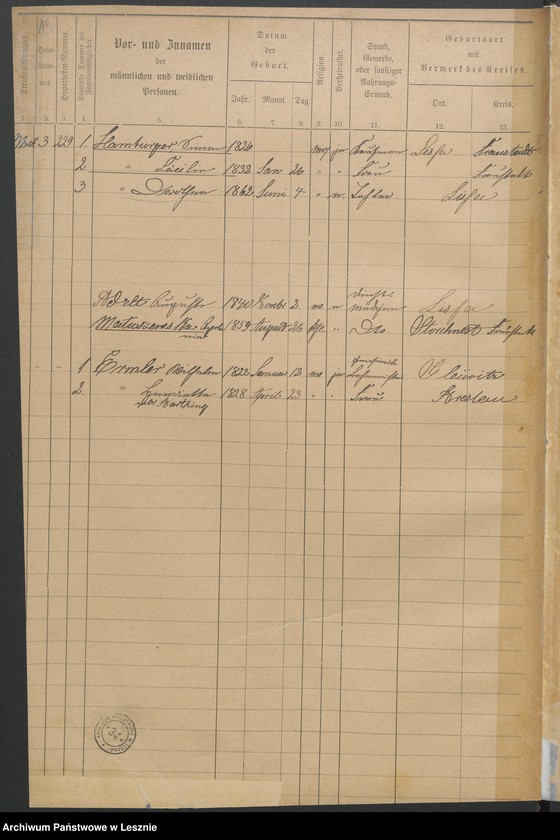 Straßen-Nummer.
Haus-Nummer.
Hypotheken-Nummer.
Laufende Nummer der Familienglieder.
Vor- und Zunamen
der
männlichen und weiblichen
Personen.
Datum
der
Geburt.
Jahr. Monat. Tag.
Religion.
Verheirathet.
Stand,
Gewerbe,
oder sonstiger
Nahrungs-
Erwerb.
Geburtsort
mit
Vermerk des Kreises.
Ort. Kreis.
1. 2. 3. 4. 5. 6. 7. 8. 9. 10. 11. 12. 13.
3 229 1. Hamburger Simon 1826 mos ja Kaufmann Lissa Fraustadt
2 " Cäcilie 1832 Jan 26 " " Frau Fraustadt
3 " Dorothea 1862 Juni 4 " n. Tochter Lissa
Adelt Auguste 1840 2. n Lissa
1859 August 26 kth " Dto Storchnest Fraustadt
" " 1 Ermler Wilhelm 1822 Januar 13 ja Gleiwitz
2. " Henriette 1828 April 23 " " Frau Breslau
34
Archiwum Państwowe w Lesznie